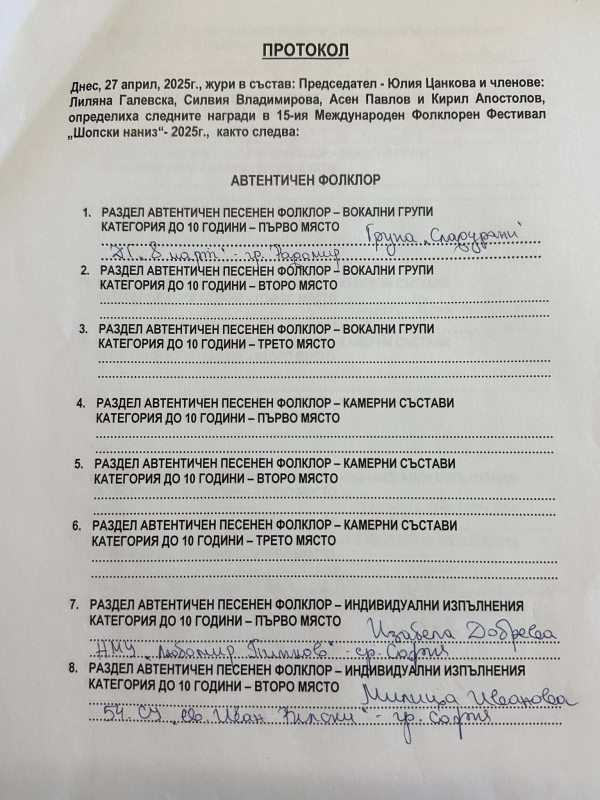 ПРОТОКОЛ
Днес, 27 април, 2025г., жури в състав: Председател - Юлия Цанкова и членове:
Лиляна Галевска, Силвия Владимирова, Асен Павлов и Кирил Апостолов,
определиха следните награди в 15-ия Международен Фолклорен Фестивал
„Шопски наниз“- 2025г., както следва:
АВТЕНТИЧЕН ФОЛКЛОР
1. РАЗДЕЛ АВТЕНТИЧЕН ПЕСЕНЕН ФОЛКЛОР – ВОКАЛНИ ГРУПИ
КАТЕГОРИЯ ДО 10 ГОДИНИ – ПЪРВО МЯСТО Група
ДГ „8 март“ - гр. Радомир
2. РАЗДЕЛ АВТЕНТИЧЕН ПЕСЕНЕН ФОЛКЛОР – ВОКАЛНИ ГРУПИ
КАТЕГОРИЯ ДО 10 ГОДИНИ – ВТОРО МЯСТО
3. РАЗДЕЛ АВТЕНТИЧЕН ПЕСЕНЕН ФОЛКЛОР – ВОКАЛНИ ГРУПИ
КАТЕГОРИЯ ДО 10 ГОДИНИ – ТРЕТО МЯСТО
4. РАЗДЕЛ АВТЕНТИЧЕН ПЕСЕНЕН ФОЛКЛОР – КАМЕРНИ СЪСТАВИ
КАТЕГОРИЯ ДО 10 ГОДИНИ – ПЪРВО МЯСТО
5. РАЗДЕЛ АВТЕНТИЧЕН ПЕСЕНЕН ФОЛКЛОР – КАМЕРНИ СЪСТАВИ
КАТЕГОРИЯ ДО 10 ГОДИНИ – ВТОРО МЯСТО
6. РАЗДЕЛ АВТЕНТИЧЕН ПЕСЕНЕН ФОЛКЛОР – КАМЕРНИ СЪСТАВИ
КАТЕГОРИЯ ДО 10 ГОДИНИ – ТРЕТО МЯСТО
7. РАЗДЕЛ АВТЕНТИЧЕН ПЕСЕНЕН ФОЛКЛОР – ИНДИВИДУАЛНИ ИЗПЪЛНЕНИЯ
КАТЕГОРИЯ ДО 10 ГОДИНИ – ПЪРВО МЯСТО Изабела Добрева
НМУ „Любомир Пипков“ - гр. София
8. РАЗДЕЛ АВТЕНТИЧЕН ПЕСЕНЕН ФОЛКЛОР – ИНДИВИДУАЛНИ ИЗПЪЛНЕНИЯ
КАТЕГОРИЯ ДО 10 ГОДИНИ – ВТОРО МЯСТО Милица Иванова
54. СУ „Св. Иван Рилски“ - гр. София